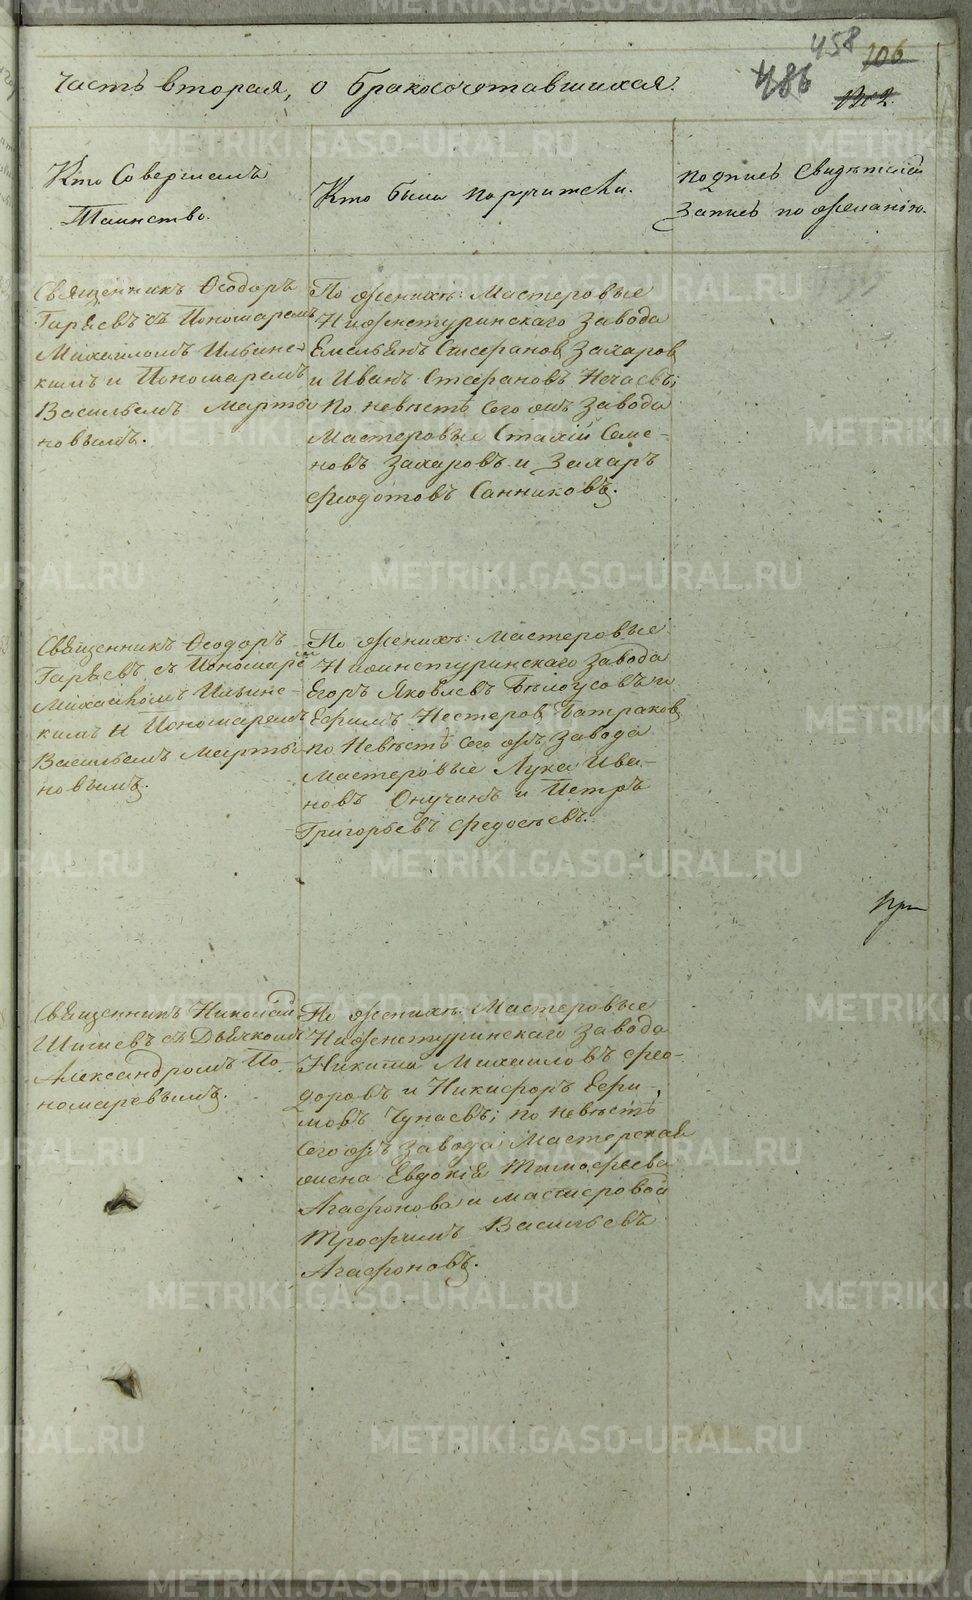 458 106
486
Часть вторая, о бракосочетавшихся.
Кто Совершалъ
Таинство.
Кто были поручители.
Подпись Свидѣтелей
Запись по желанію.
Священникъ Ѳеодоръ
Гаряевъ съ Пономаремъ
Михаиломъ Ильинс-
кимъ и Пономаремъ
Васильемъ Марты-
новымъ.
По женихѣ: Мастеровые
Нижнетуринскаго завода
Емельянъ Стефановъ Захаровъ
и Иванъ Стефановъ Нечаевъ;
по невѣстѣ сего жъ завода
Мастеровые Стахій Семе-
новъ Захаровъ и Захаръ
Феодотовъ Санниковъ.
Священникъ Ѳеодоръ
Гаряевъ съ Пономаремъ
Михаиломъ Ильинс-
кимъ и Пономаремъ
Васильемъ Марты-
новымъ.
По женихѣ: Мастеровые
Нижнетуринскаго завода
Егоръ Яковлевъ Бѣлоусовъ и
Ефимъ Нестеровъ Батраковъ
по Невѣстѣ сего жъ завода
Мастеровые Лука Ива-
новъ Онучинъ и Петръ
Григорьевъ Федосѣевъ.
Священникъ Николай
Шишевъ съ Дьячкомъ
Александромъ По-
номаревымъ.
По женихѣ: Мастеровые
Нижнетуринскаго завода
Никита Михаиловъ Фео-
доровъ и Никифоръ Ефи-
мовъ Чупаевъ; по невѣстѣ
сего жъ завода Мастерская
жена Евдокія Тимофѣева
Агафонова и мастеровой
Трофимъ Васильевъ
Агафоновъ.
METRIKI.GASO-URAL.RU